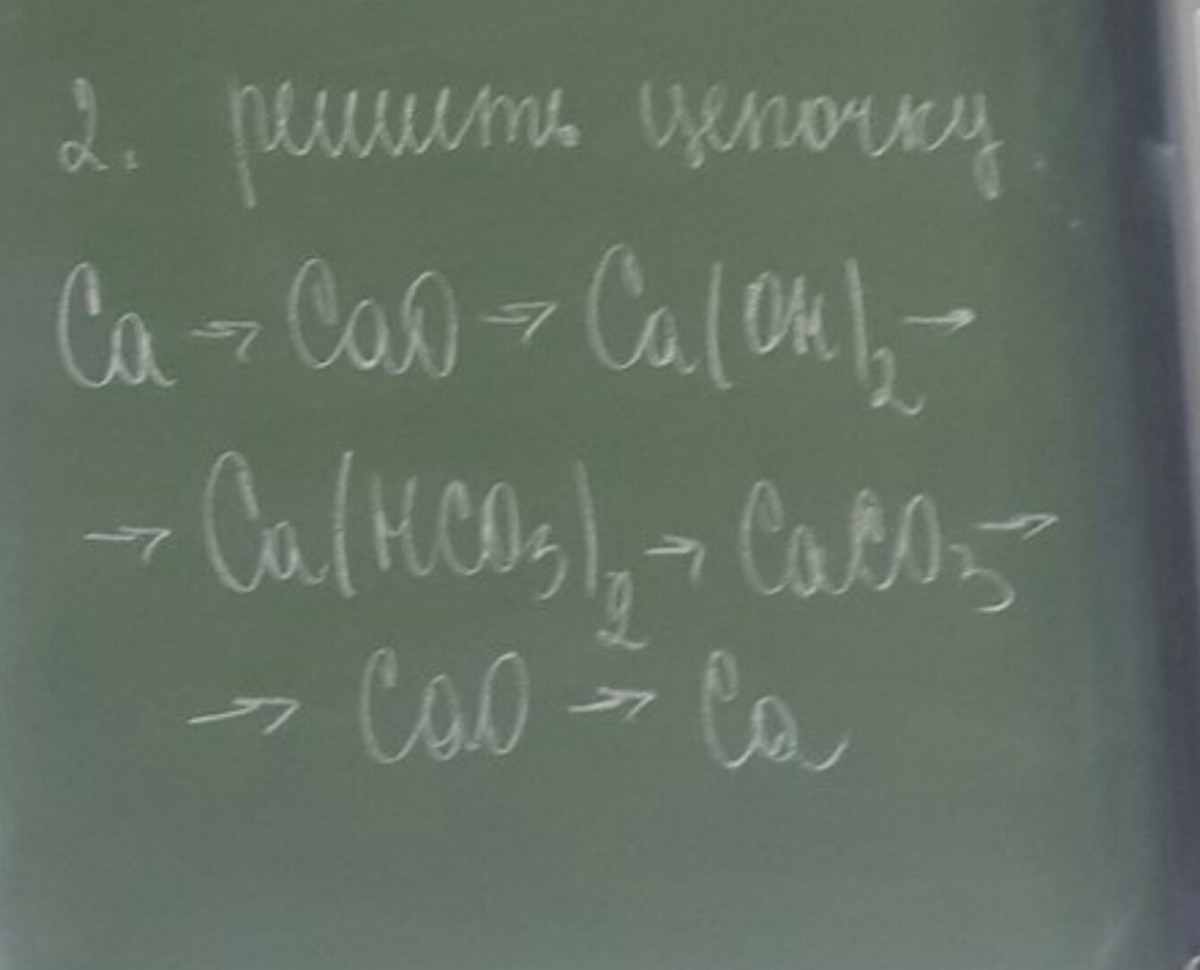 2. решить цепочку.
Ca → CaO → Ca(OH)₂ →
→ Ca(HCO₃)₂ → CaCO₃ →
→ CaO → Ca